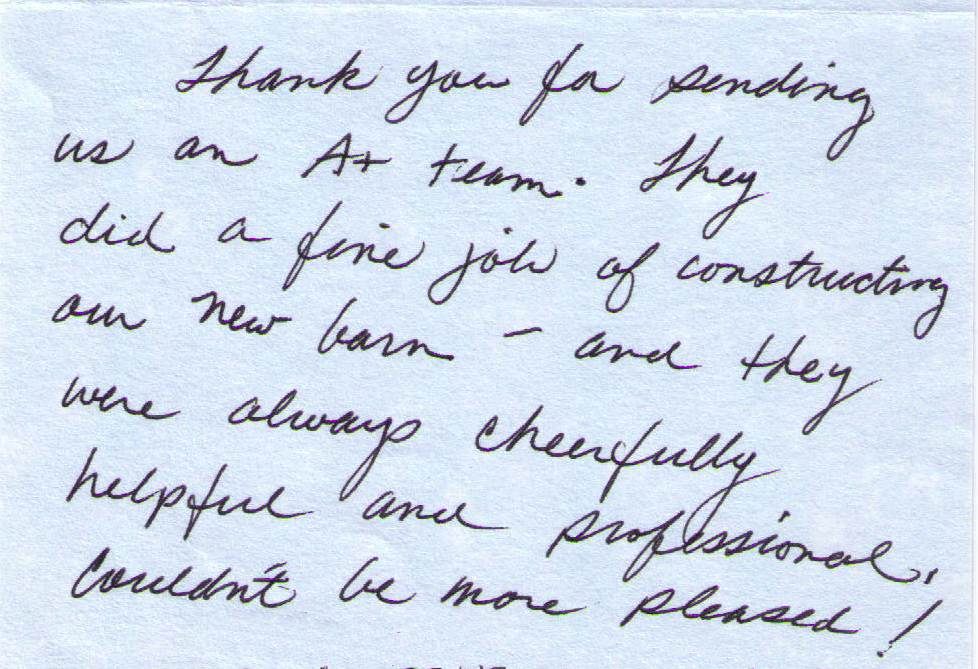 Thank you for sending
us an A+ team. They
did a fine job of constructing
our new barn - and they
were always cheerfully
helpful and professional.
Couldn't be more pleased!